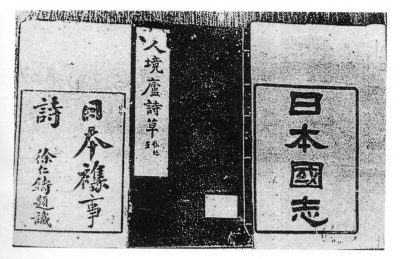 日本國志
人境廬詩草
日本襍事
詩
徐仁鑄題籤